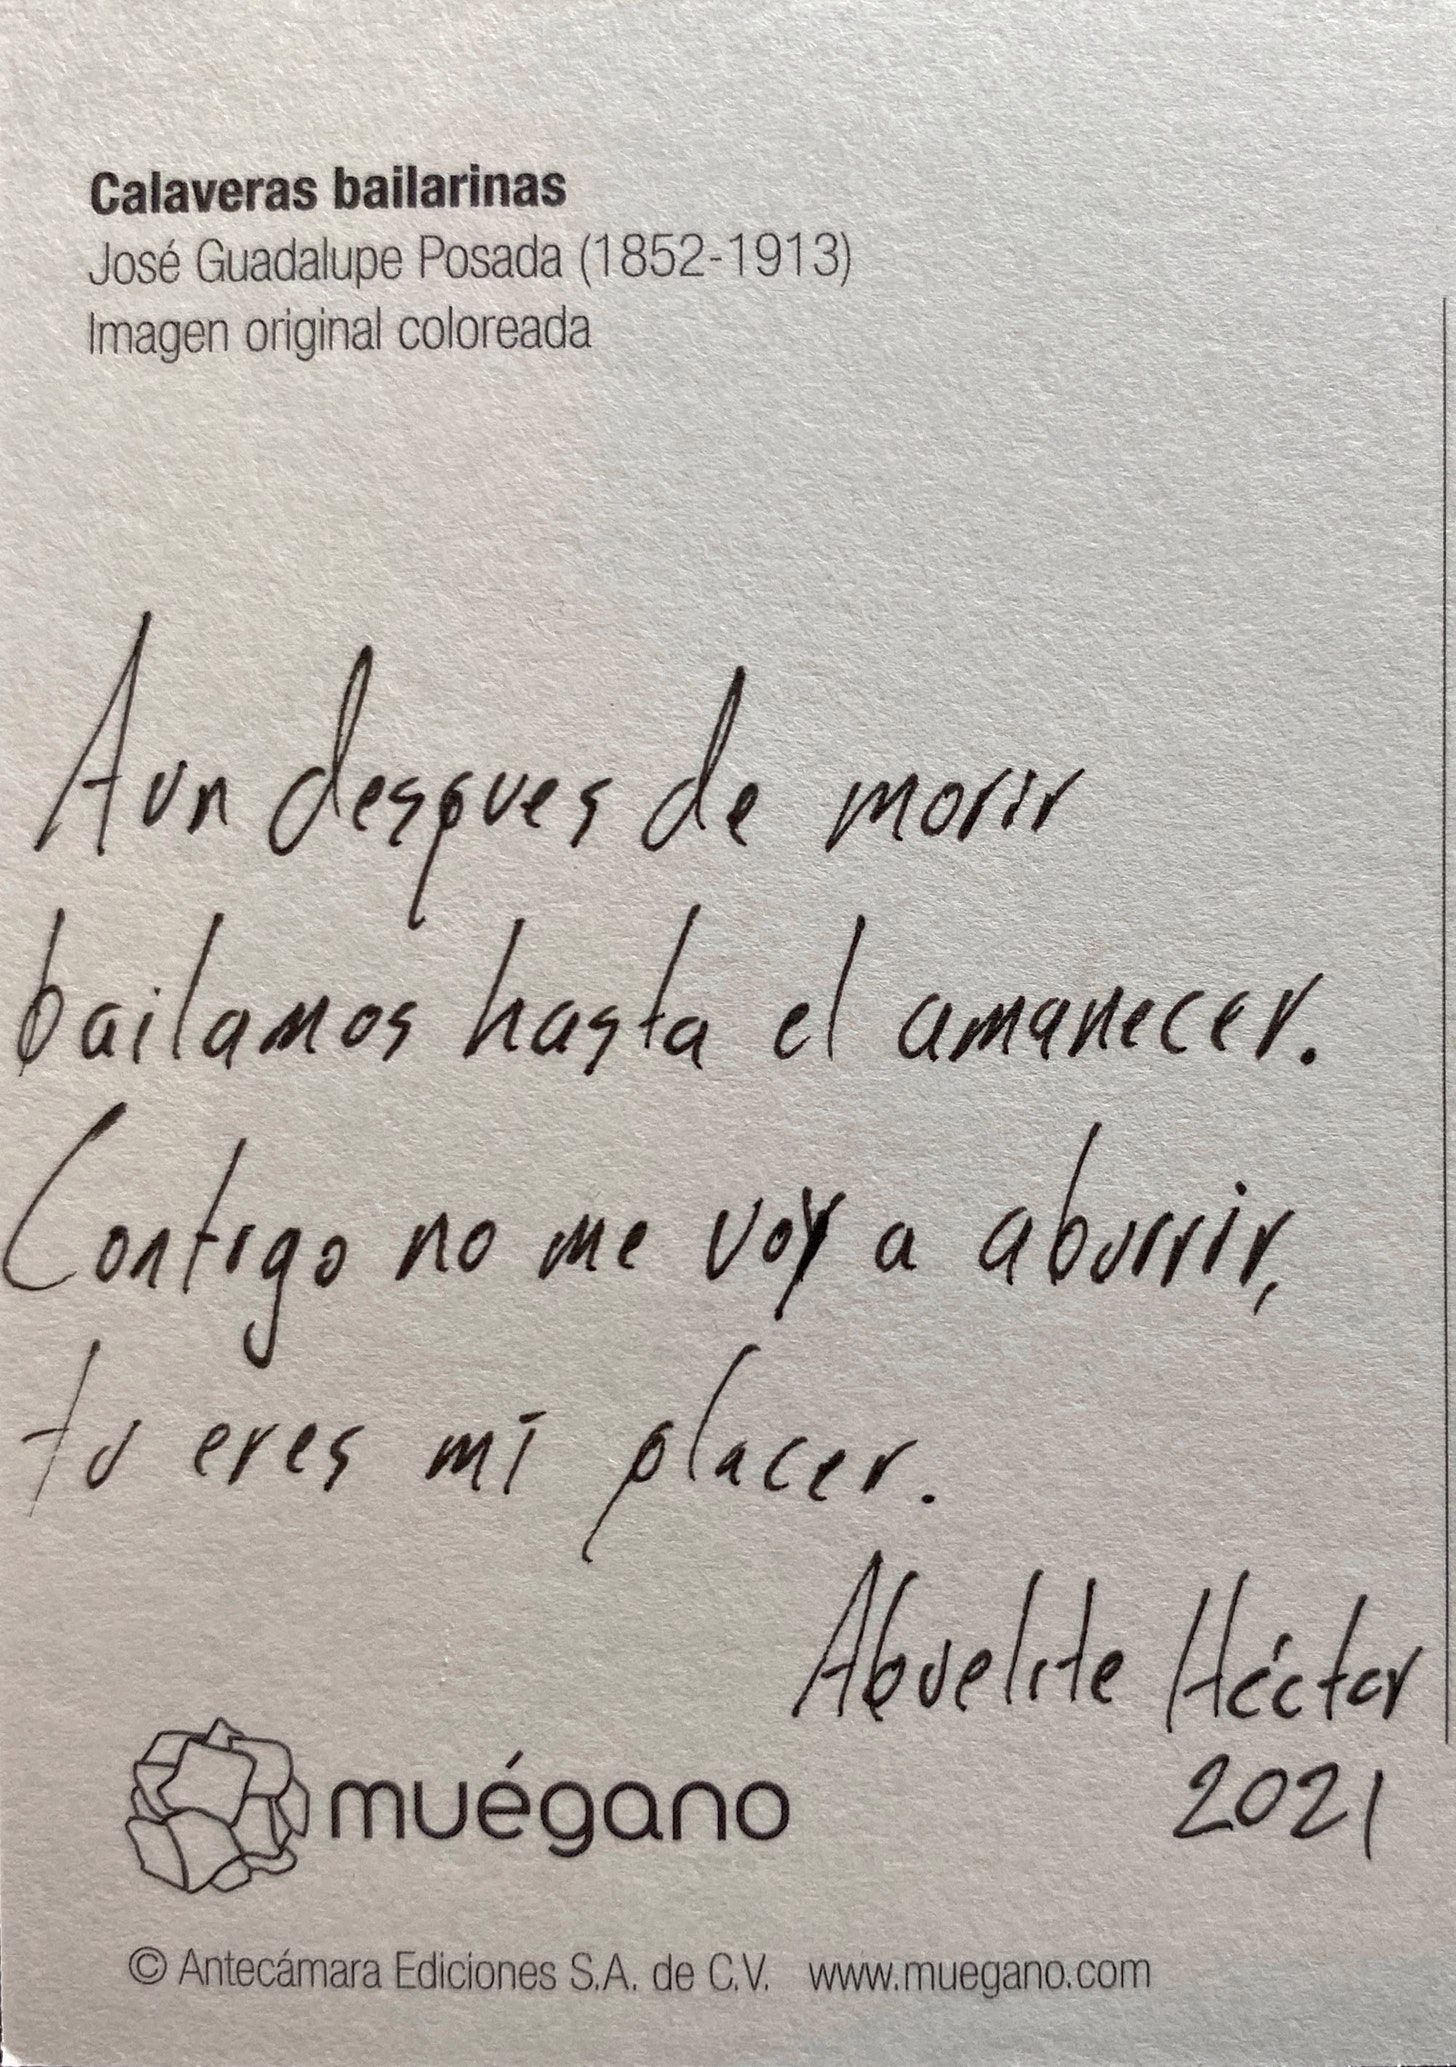 Calaveras bailarinas
José Guadalupe Posada (1852-1913)
Imagen original coloreada
Aun despues de morir
bailamos hasta el amanecer.
Contigo no me voy a aburrir,
tu eres mi placer.
Abuelite Héctor
2021
muégano
© Antecámara Ediciones S.A. de C.V. www.muegano.com